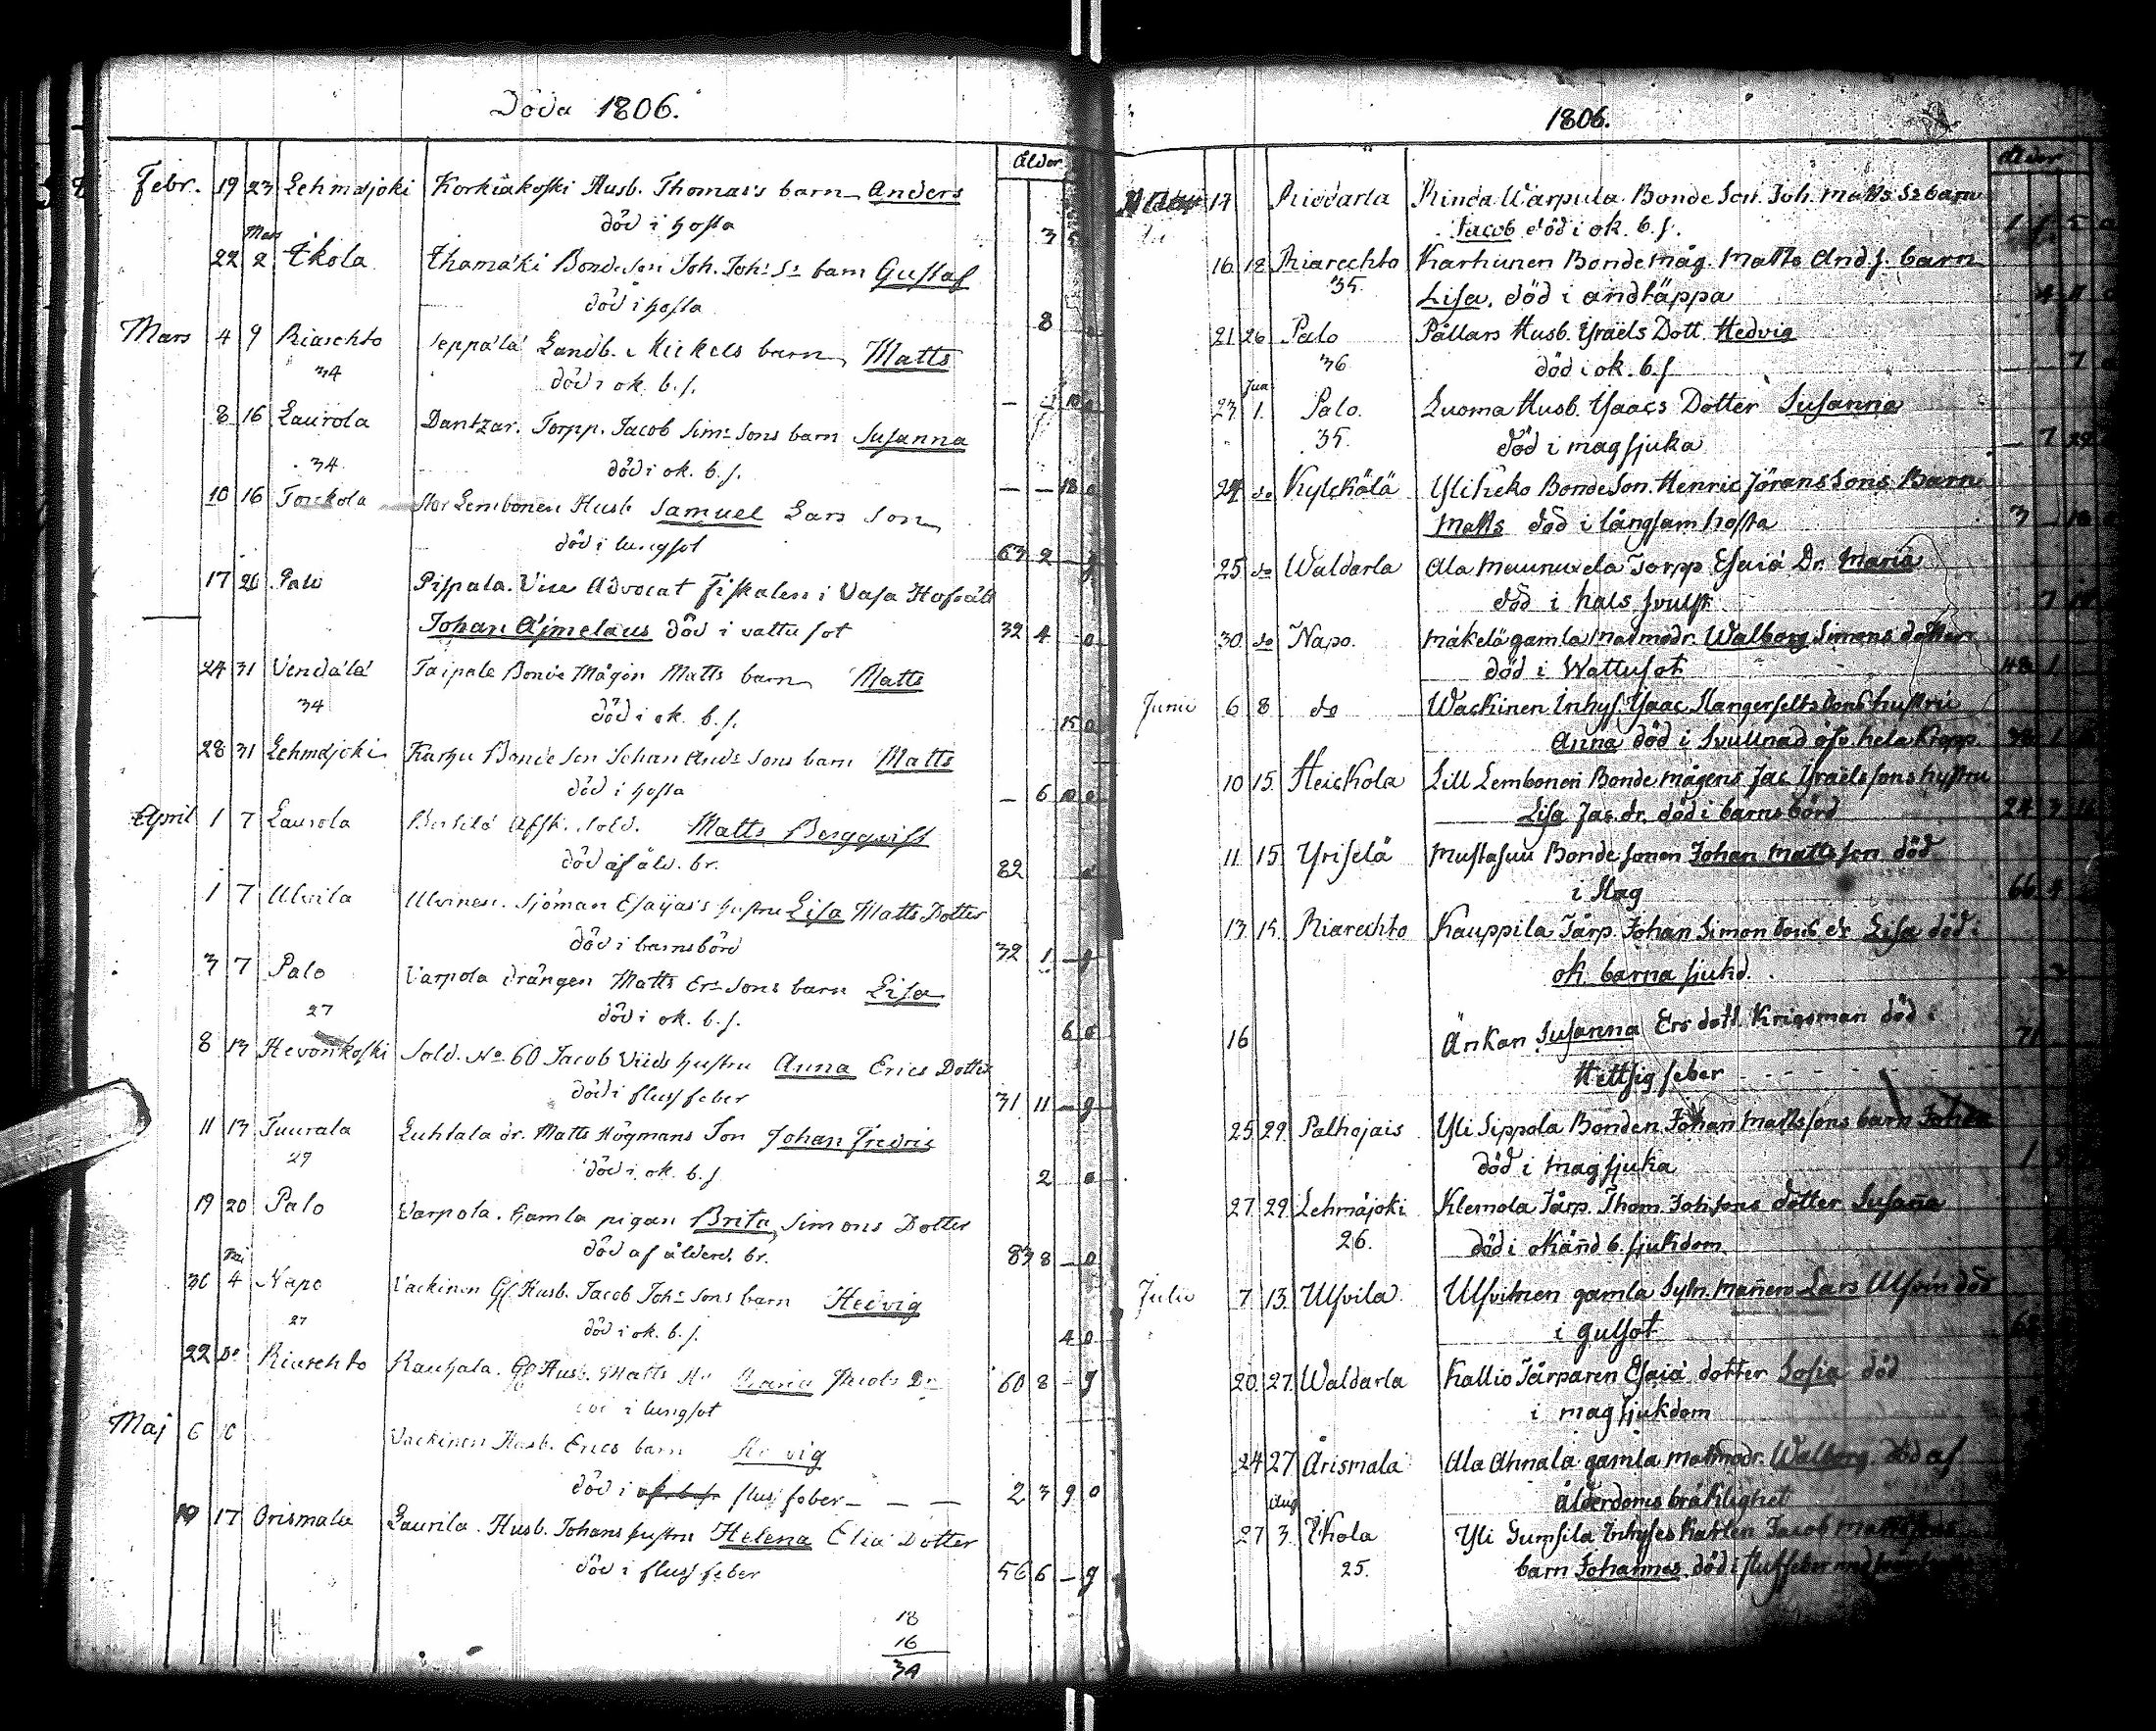 Döda 1806.
Ålder
Febr. 19 23 Lehmäjoki Korkiakoski Husb. Thomas's barn Anders
död i hosta 3
Mars
22 2 Ikola Ihamäki Bonde Son Joh. Joh:s Ss barn Gustaf
död i hosta 8
Mars 4 9 Riarehto Seppälä Landb. Mickels barn Matts
34 död i ok. b. s.
8 16 Laurola Dantzar. Torpp. Jacob Sim:s Sons barn Susanna
34. död i ok. b. s. — — 18 0
10 16 Torckola Stor Lembonen Husb. Samuel Lars Son
död i lungsot 63 2 — g
17 26 Palo Pispala. Vice Advocat Fiskalen i Vasa Hofrätt
Johan Ajmelaus död i vattusot 32 4 — o
24 31 Vendälä Taipale Bonde Mågen Matts barn Matts
34 död i ok. b. s. 15 0
28 31 Lehmäjoki Karhu Bonde Son Johan And:s Sons barn Matts
död i hosta — 6 10 0
April 1 7 Laurola Bertilä Afsk. Sold. Matts Bergqvist
död af åld. br. 82
1 7 Ulvila Ulvinen. Sjöman Esaijas's hustru Lisa Matts Dotter
död i barnsbörd 32 1 — g
3 7 Palo Varpola drängen Matts Er:s Sons barn Lisa
27 död i ok. b. s. 6 0
8 13 Hevonkoski Sold. No 60 Jacob Viids hustru Anna Erics Dotter
död i fluss feber 31 11 — g
11 13 Tuurala Luhtala dr. Matts Högmans Son Johan Fredric
29 död i ok. b. s. 2 0
19 20 Palo Varpola. Gamla pigan Brita Simons Dotter
död af ålderd. br. 83 8 — 0
Mai
30 4 Napo Vackinen Gl. Husb. Jacob Joh:s Sons barn Hedvig
27 död i ok. b. s. 4 0
22 Do Riarehto Rauhala. Gl Husb. Matts Hu Maria Jacobs Dr
död i lungsot 60 8 — g
Maj 6 Vackinen Husb. Erics barn Hedvig
död i fluss feber — — — 2 3 9 0
10 17 Orismala Laurila. Husb. Johans hustru Helena Eliæ Dotter
död i fluss feber 56 6 — g
18
16
34
1806.
Ålder
Maji 17 Riddarla Rinda Warpula Bonde Son. Joh. Matts Ss barn
Jacob död i ok. b. s. 1
16 18 Riarechto Karhunen Bondemåg. Matts And. s. barn
35. Lisa. död i andtäppa
21 26 Palo Pållars Husb. Ysraels Dott. Hedvig
36 död i ok. b. s. 7
Jun
23 1. Palo. Luoma Husb. Ysaacs Dotter Susanna
35. död i magsjuka — 7 22
24 do Kylckälä Yliheko Bonde Son. Henric Jörans Sons Barn
Matts död i långsam hosta 3
25 do Waldarla Ala Maunuxela Torpp Esaiæ Dr. Maria
död i hals svulst 7
30 do Napo. Mäkelä gamla madmodr. Walborg Simons dotter
död i Wattusot 48 1 —
Junii 6 8 do Wackinen Inhys. Ysaac Sons hustru
Anna död i Svullnad öfv. hela Kropp.
10 15. Heickola Lill Lembonen Bonde mågens Jac Ysraels sons hustru
Lisa Jac. dr. död i barnsbörd 24 3
11. 15 Yriselä Mustasuu Bonde sonen Johan Mattsson död
i Slag 66
13. 15. Riarechto Kauppila Tårp. Johan Simon Sons dr Lisa död i
ok. barna sjukd.
16 Änkan Susanna Ers dott. Krigsman död i
Hettsig feber 71
25. 29. Palhojais Yli Sippola Bonden Johan Mattssons barn
död i magsjuka 1
27 29. Lehmäjoki Klemola Tårp. Thom. Johsons dotter Susana
26. död i okänd b. sjukdom
Julii 7 13. Ulfvila. Ulfvinen gamla Sytn. mañen Lars Ulfvin död
i gulsot
20. 27. Waldarla Kallio Tårparen Esaiæ dotter Sofia död
i magsjukdom
24 27 Årismala Ala Ahnala gamla matmodr. Walborg död af
Ålderdoms bräklighet
Aug
27 3. Ikola Yli Gumsila Inhyses Karlen Jacob
25. barn Johannes död i flussfeber